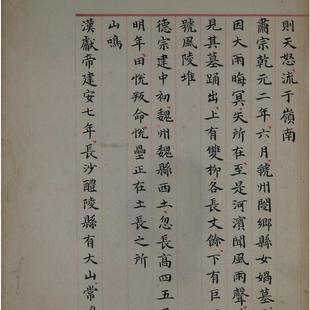 則天怒流于嶺南
肅宗乾元二年六月虢州閿鄉縣女媧墓
因大雨晦冥失所在至是河濱聞風雨聲
見其墓踊出上有雙柳各長丈餘下有巨
號風陵堆
德宗建中初魏州魏縣西土忽長高四五
明年田悅叛命悅壘正在土長之所
山鳴
漢獻帝建安七年長沙醴陵縣有大山常